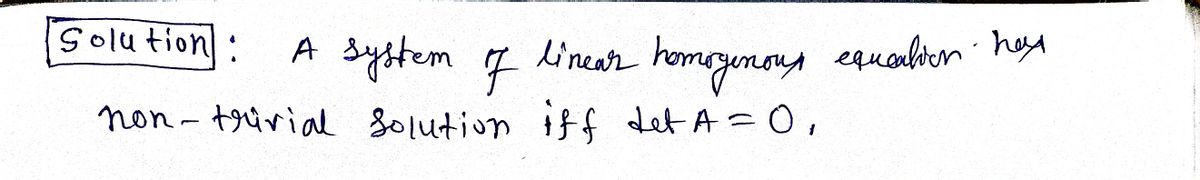 Solution : A system of linear homogenous equation has
non-trivial solution iff det A = 0,